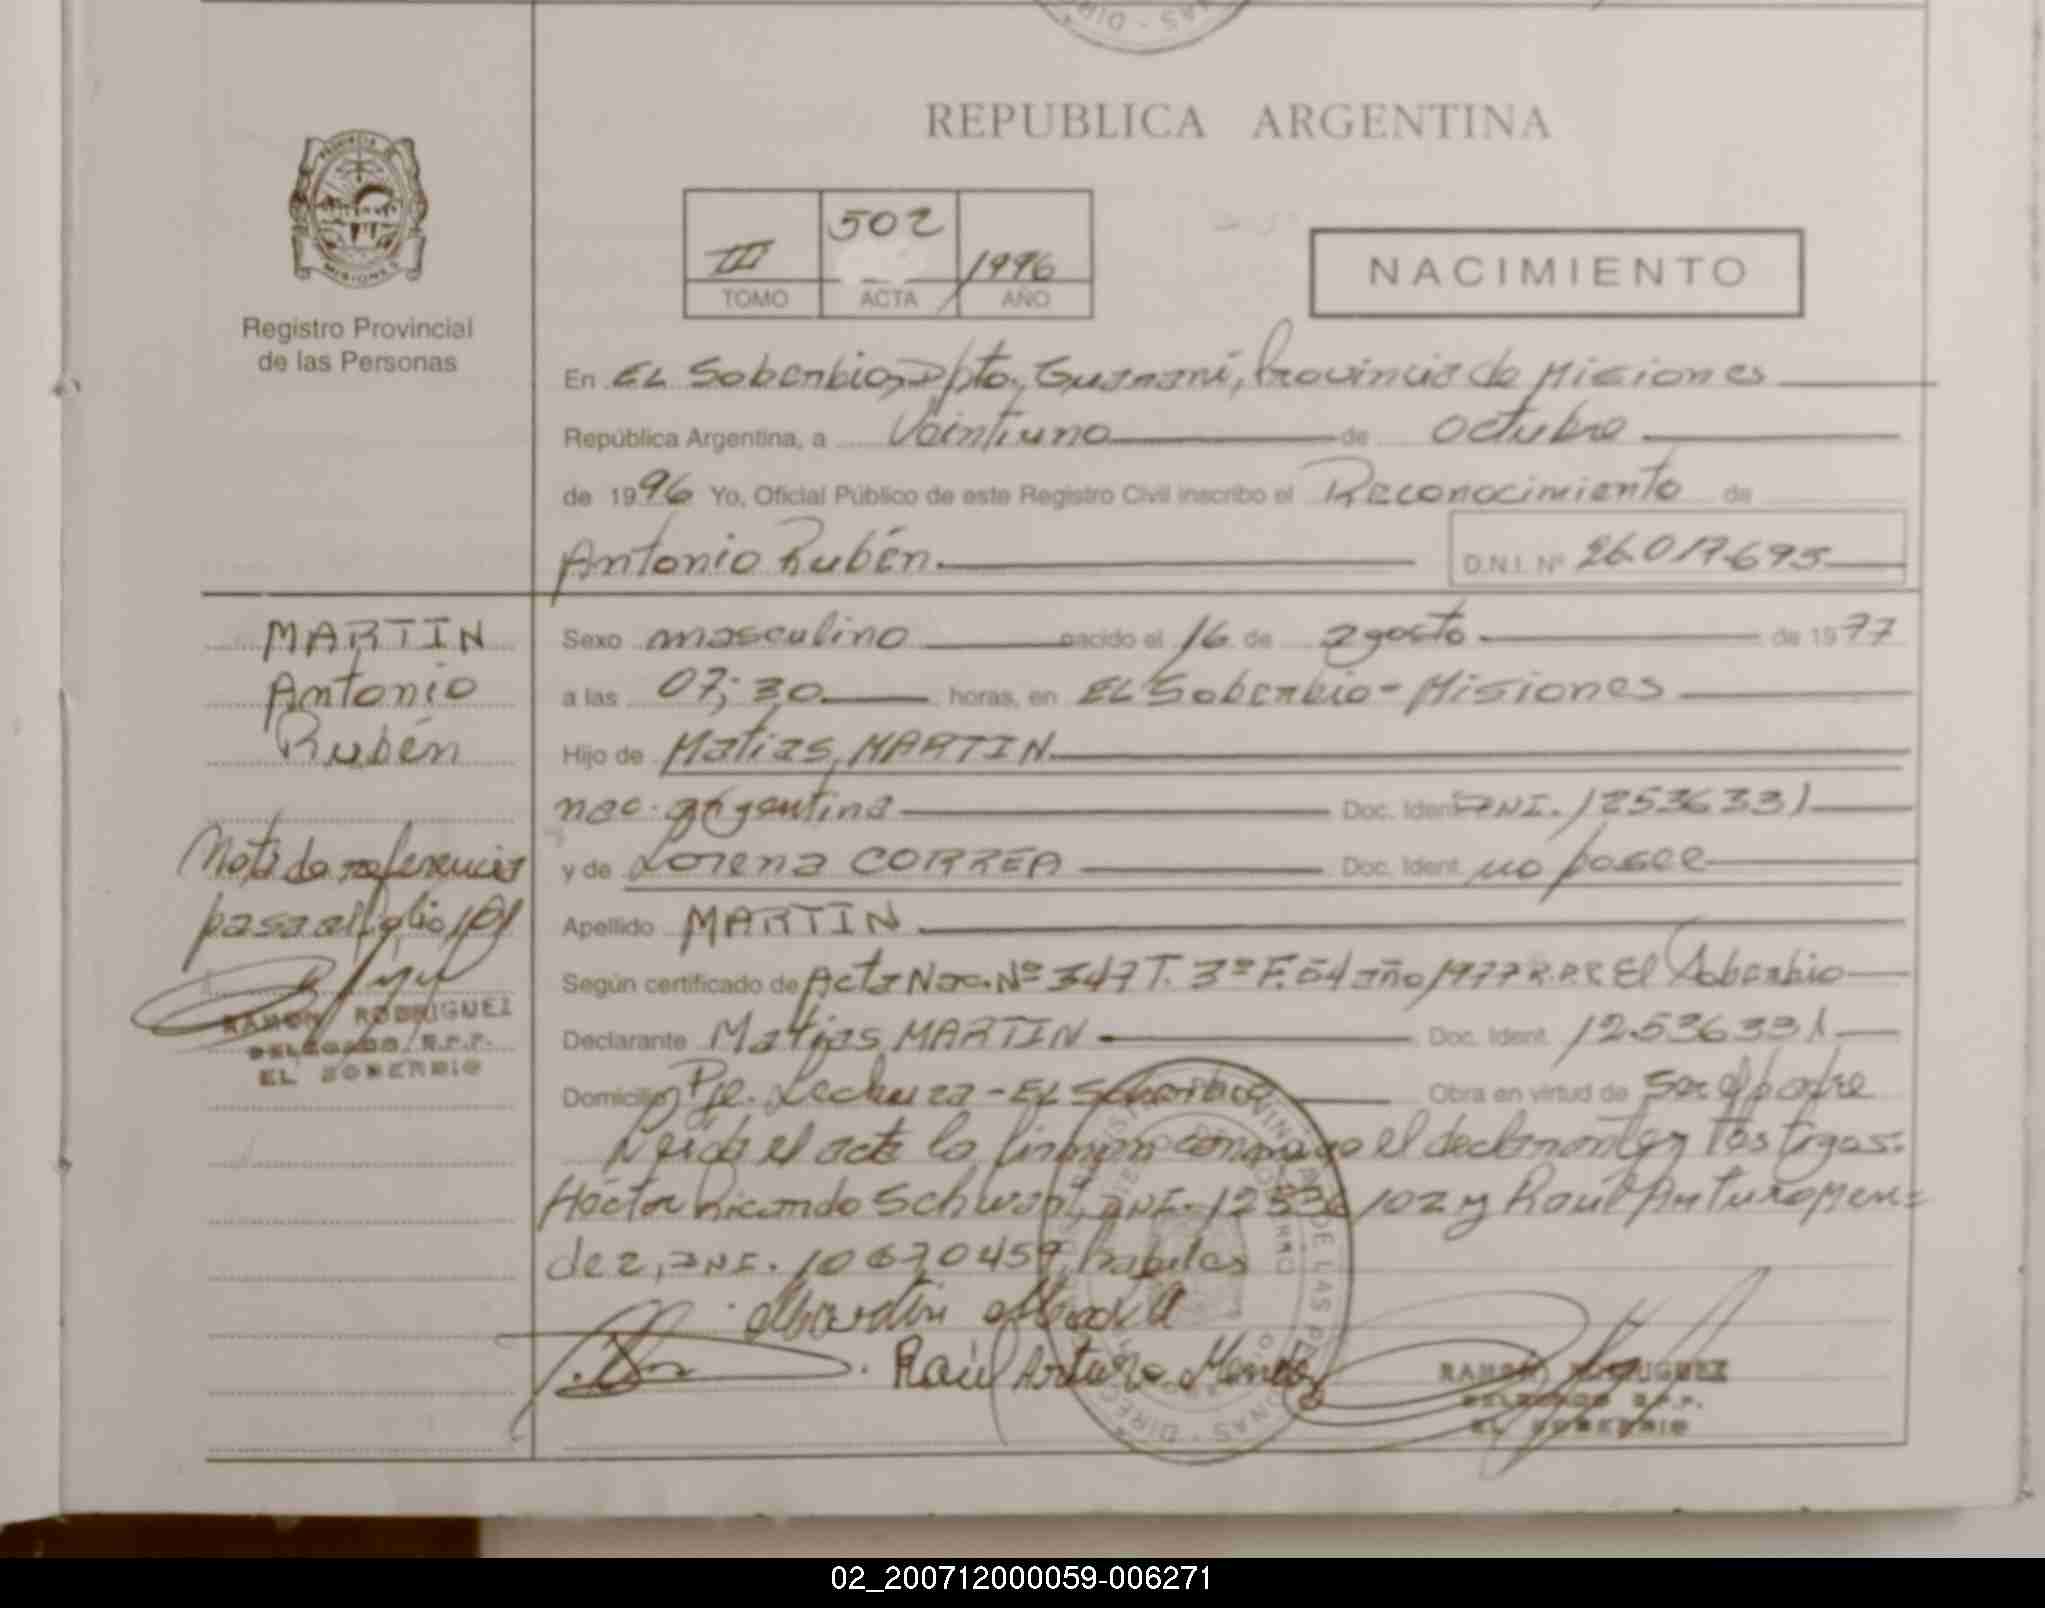 REPUBLICA ARGENTINA
PROVINCIA DE
MISIONES
Registro Provincial
de las Personas
III 502 1996
TOMO ACTA AÑO
NACIMIENTO
En EL Soberbio, Dpto. Guaraní, Provincia de Misiones
República Argentina, a Veintiuno de octubre
de 1996 Yo, Oficial Público de este Registro Civil inscribo el Reconocimiento de
Antonio Rubén. D.N.I. Nº 26.017.695
MARTIN
Antonio
Rubén
Nota de referencia
pasa al folio 101
RAMON RODRIGUEZ
DELEGADO R.P.P.
EL SOBERBIO
Sexo masculino nacido el 16 de agosto de 1977
a las 07:30 horas, en EL Soberbio - Misiones
Hijo de Matías MARTIN
nac. argentina Doc. Ident. DNI. 12536331
y de Lorena CORREA Doc. Ident. no posee
Apellido MARTIN
Según certificado de Acta Nac. Nº 347 T. 3º F. 54 año 1977 R.P.P. El Soberbio
Declarante Matías MARTIN Doc. Ident. 12.536.331
Domicilio Pje. Lechuza - EL Soberbio Obra en virtud de Ser el padre
Leída el acta la firman conmigo el declarante y Testigos:
Héctor Ricardo Schwart, DNI. 12536102 y Raúl Arturo Men=
dez, DNI. 10670459, habiles
Raúl Arturo Mendez
RAMON RODRIGUEZ
DELEGADO R.P.P.
EL SOBERBIO
02_200712000059-006271